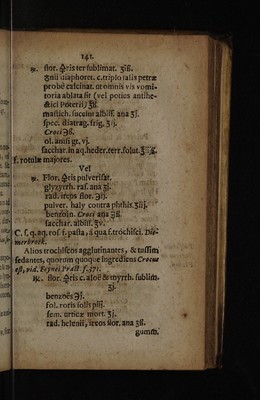 141.
℞. flor. 🜍ris ter sublimat. ʒiß.
gnii diaphoret. c. triplo salis petræ
probè calcinat. ut omnis vis vomi-
toria ablata sit (vel potius antihe-
ctici Poterii) ʒß.
mastich. succini albiss. ana ʒj.
spec. diatrag. frig. ʒij.
Croci ℈ß.
ol. anisi gt. vj.
sacchar. in aq. heder. terr. solut.
f. rotulæ majores.
Vel
℞. Flor. 🜍ris pulverisat.
glyzyrrh. ras. ana ʒj.
rad. ireos flor. ℈ij.
pulver. haly contra phthis. ʒiij.
benzoin. Croci ana ℈ß.
sacchar. albiss. ʒv.
C. s. q. aq. ros. f. pasta, â qua f. trochisci. Die-
merbrœck.
Alios trochiscos agglutinantes, & tussim
sedantes, quorum quoque ingrediens Crocus
est, vid. Frynei Pract. f. 371.
℞. flor. 🜍ris c. aloë & myrrh. sublim.
ʒj.
benzoës ℈j.
fol. roris solis piij.
sem. urticæ mort. ʒj.
rad. helenii, ireos flor. ana ʒß.
gumm.